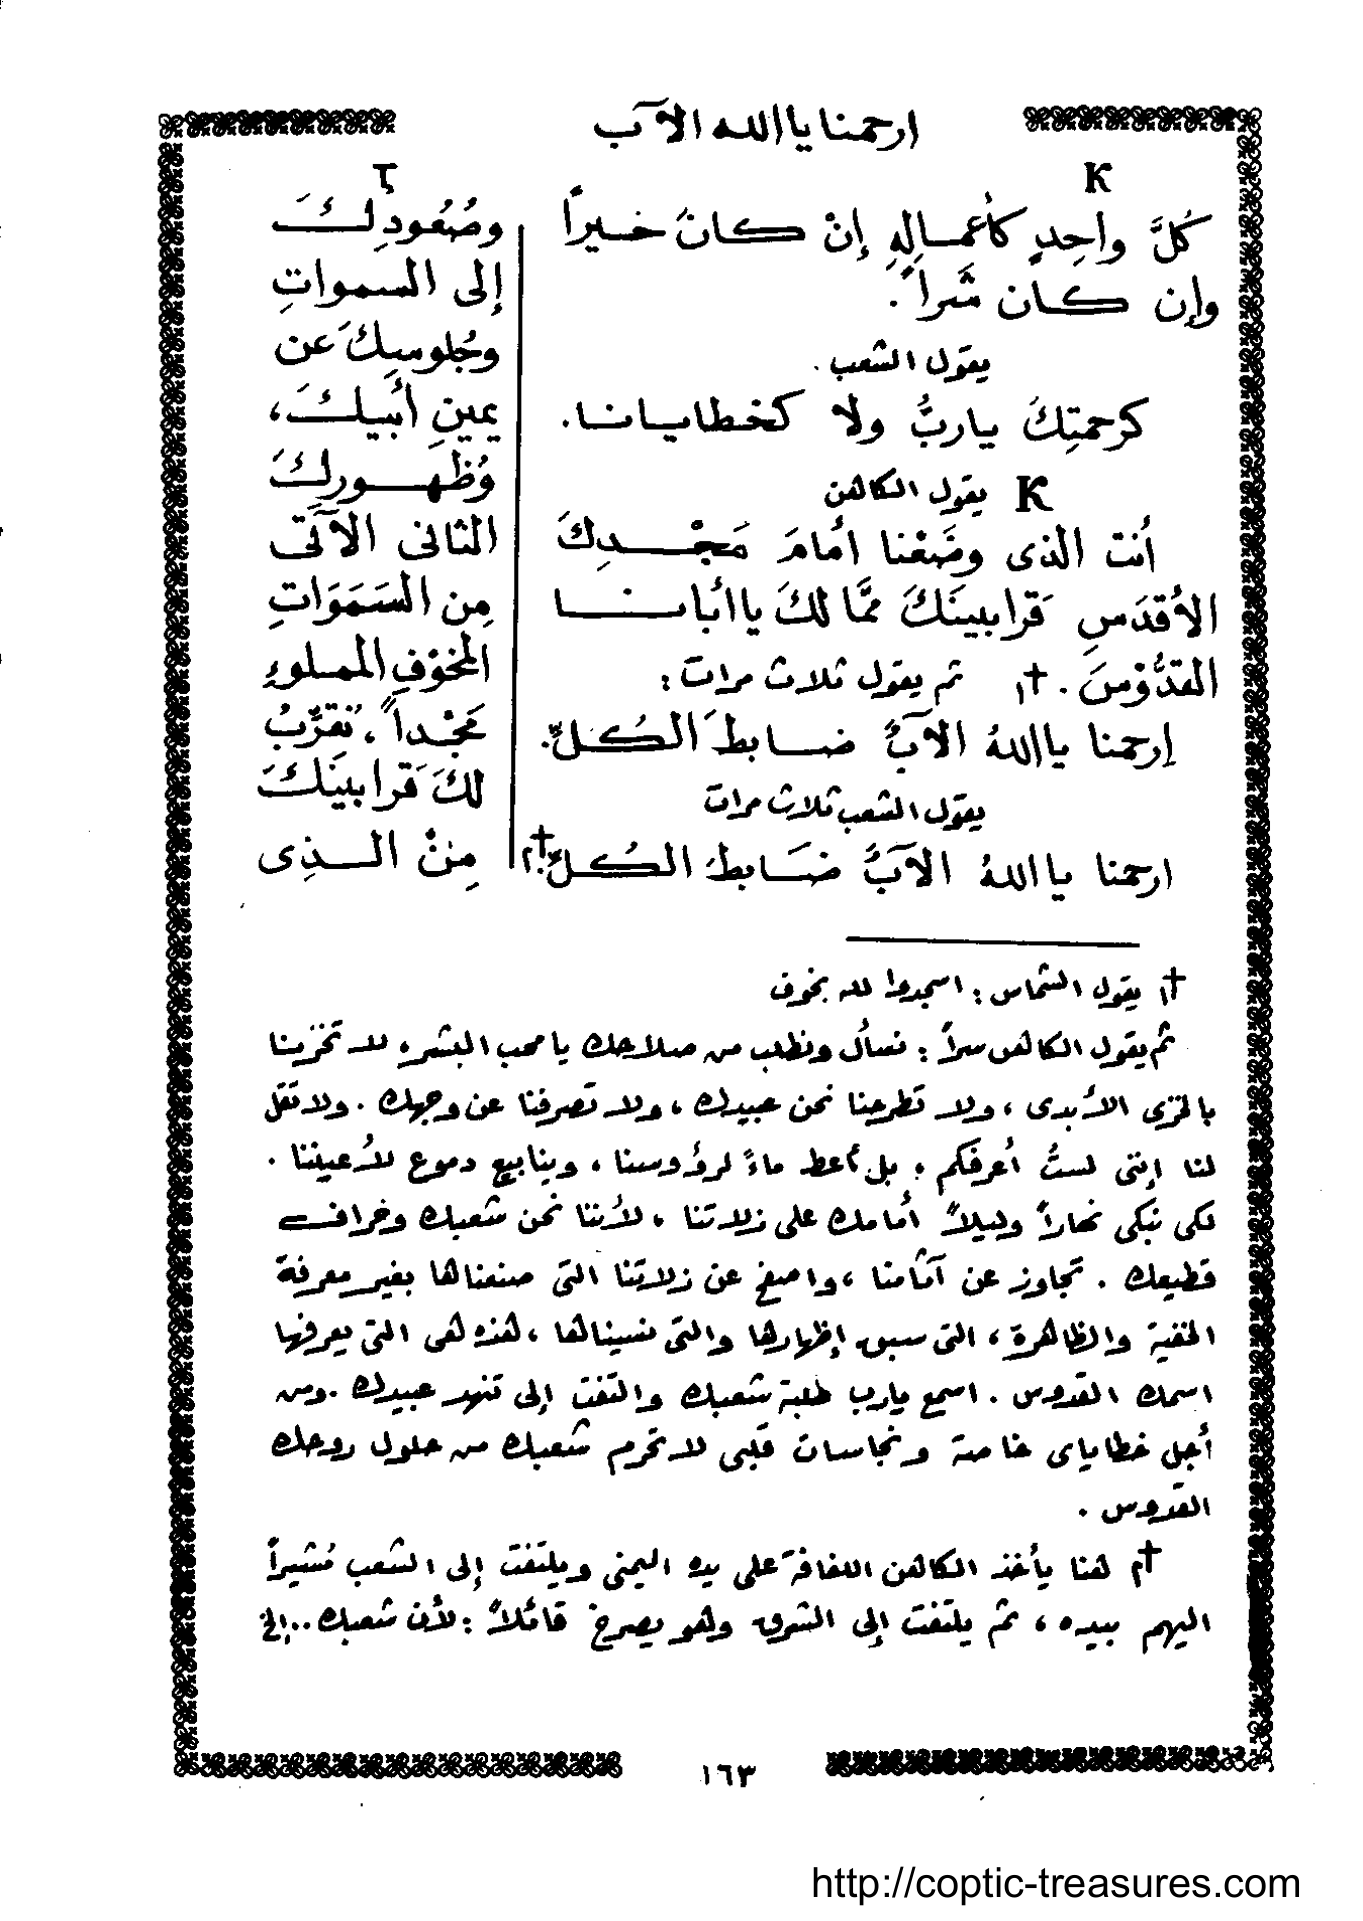 ارحمنا يا الله الآب
K
كُلَّ واحِدٍ كأَعمالِهِ إِنْ كانَ خيراً
وإن كان شَراً.
يقول الشعب.
كرحمتِكَ ياربُّ ولا كخطايانا.
K يقول الكاهن
أَنت الذى وضَعْنا أَمامَ مَجْدِكَ
الأقدَسِ قرابينَكَ ممَّا لكَ ياأَبانا
القدُّوسَ. †١ ثم يقول ثلاث مرات:
إِرحمنا ياالله الآبُ ضابطَ الكُلِّ.
يقول الشعب ثلاث مرات
ارحمنا ياالله الآبُ ضَابطُ الكُلِّ †٢.
ٮ
وصُعُودِكَ
إلى السمواتِ
وجُلوسِكَ عن
يمينِ أَبيكَ،
وُظهورِكَ
الثانى الآتى
مِن السَمَوَاتِ
المخوْفِ المملوءِ
مَجْداً، نُقرِّبُ
لكَ قرابينَكَ
مِنْ الذِى
†١ يقول الشماس: اسجدوا لله بخوف
ثم يقول الكاهن سراً: نسأل ونطلب من صلاحك يا محب البشر، لا تخزينا
بالخزى الأبدى، ولا تطرحنا نحن عبيدك، ولا تصرفنا عن وجهك. ولا تقل
لنا إننى لستُ أعرفكم، بل أعط ماءً لرؤوسنا، وينابيع دموع لأعيننا.
لكى نبكى نهاراً وليلاً أمامك على زلاتنا، لأننا نحن شعبك وخراف
قطيعك. تجاوز عن آثامنا، واصفح عن زلاتنا التى صنعناها بغير معرفة
الخفية والظاهرة، التى سبق إظهارها والتى نسيناها، هذه هى التى يعرفها
اسمك القدوس. اسمع يارب طلبة شعبك والتفت إلى تنهد عبيدك. ومن
أجل خطاياى خاصة ونجاسات قلبى لا تحرم شعبك من حلول روحك
القدوس.
†٢ هنا يأخذ الكاهن اللفافة على يده اليمنى ويلتفت إلى الشعب مُشيراً
اليهم بيده، ثم يلتفت إلى الشرق وهو يصرخ قائلاً: لأن شعبك.. إلخ
١٦٣
http://coptic-treasures.com